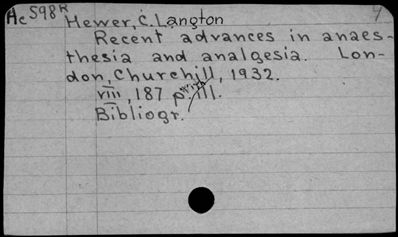 Ac S98R
Hewer, C. Langton
Recent advances in anaes-
thesia and analgesia. Lon-
don, Churchill, 1932.
viii, 187 p. with ill.
Bibliogr.